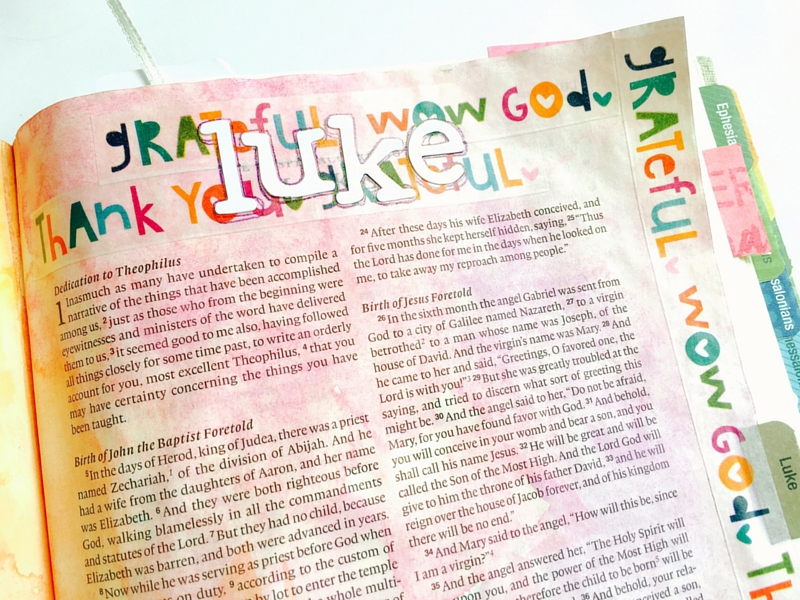 grateful wow God
luke
Thank You grateful
Dedication to Theophilus
1 Inasmuch as many have undertaken to compile a
narrative of the things that have been accomplished
among us, 2 just as those who from the beginning were
eyewitnesses and ministers of the word have delivered
them to us, 3 it seemed good to me also, having followed
all things closely for some time past, to write an orderly
account for you, most excellent Theophilus, 4 that you
may have certainty concerning the things you have
been taught.
Birth of John the Baptist Foretold
5 In the days of Herod, king of Judea, there was a priest
named Zechariah,1 of the division of Abijah. And he
had a wife from the daughters of Aaron, and her name
was Elizabeth. 6 And they were both righteous before
God, walking blamelessly in all the commandments
and statutes of the Lord. 7 But they had no child, because
Elizabeth was barren, and both were advanced in years.
8 Now while he was serving as priest before God when
on duty, 9 according to the custom of
by lot to enter the temple
whole multi-
24 After these days his wife Elizabeth conceived, and
for five months she kept herself hidden, saying, 25 "Thus
the Lord has done for me in the days when he looked on
me, to take away my reproach among people."
Birth of Jesus Foretold
26 In the sixth month the angel Gabriel was sent from
God to a city of Galilee named Nazareth, 27 to a virgin
betrothed2 to a man whose name was Joseph, of the
house of David. And the virgin's name was Mary. 28 And
he came to her and said, "Greetings, O favored one, the
Lord is with you!"3 29 But she was greatly troubled at the
saying, and tried to discern what sort of greeting this
might be. 30 And the angel said to her, "Do not be afraid,
Mary, for you have found favor with God. 31 And behold,
you will conceive in your womb and bear a son, and you
shall call his name Jesus. 32 He will be great and will be
called the Son of the Most High. And the Lord God will
give to him the throne of his father David, 33 and he will
reign over the house of Jacob forever, and of his kingdom
there will be no end."
34 And Mary said to the angel, "How will this be, since
I am a virgin?"4
35 And the angel answered her, "The Holy Spirit will
upon you, and the power of the Most High will
therefore the child to be born5 will be
36 And behold, your rela-
conceived a son,
grateful wow God Th
Ephesia
salonians
hessalo
Luke